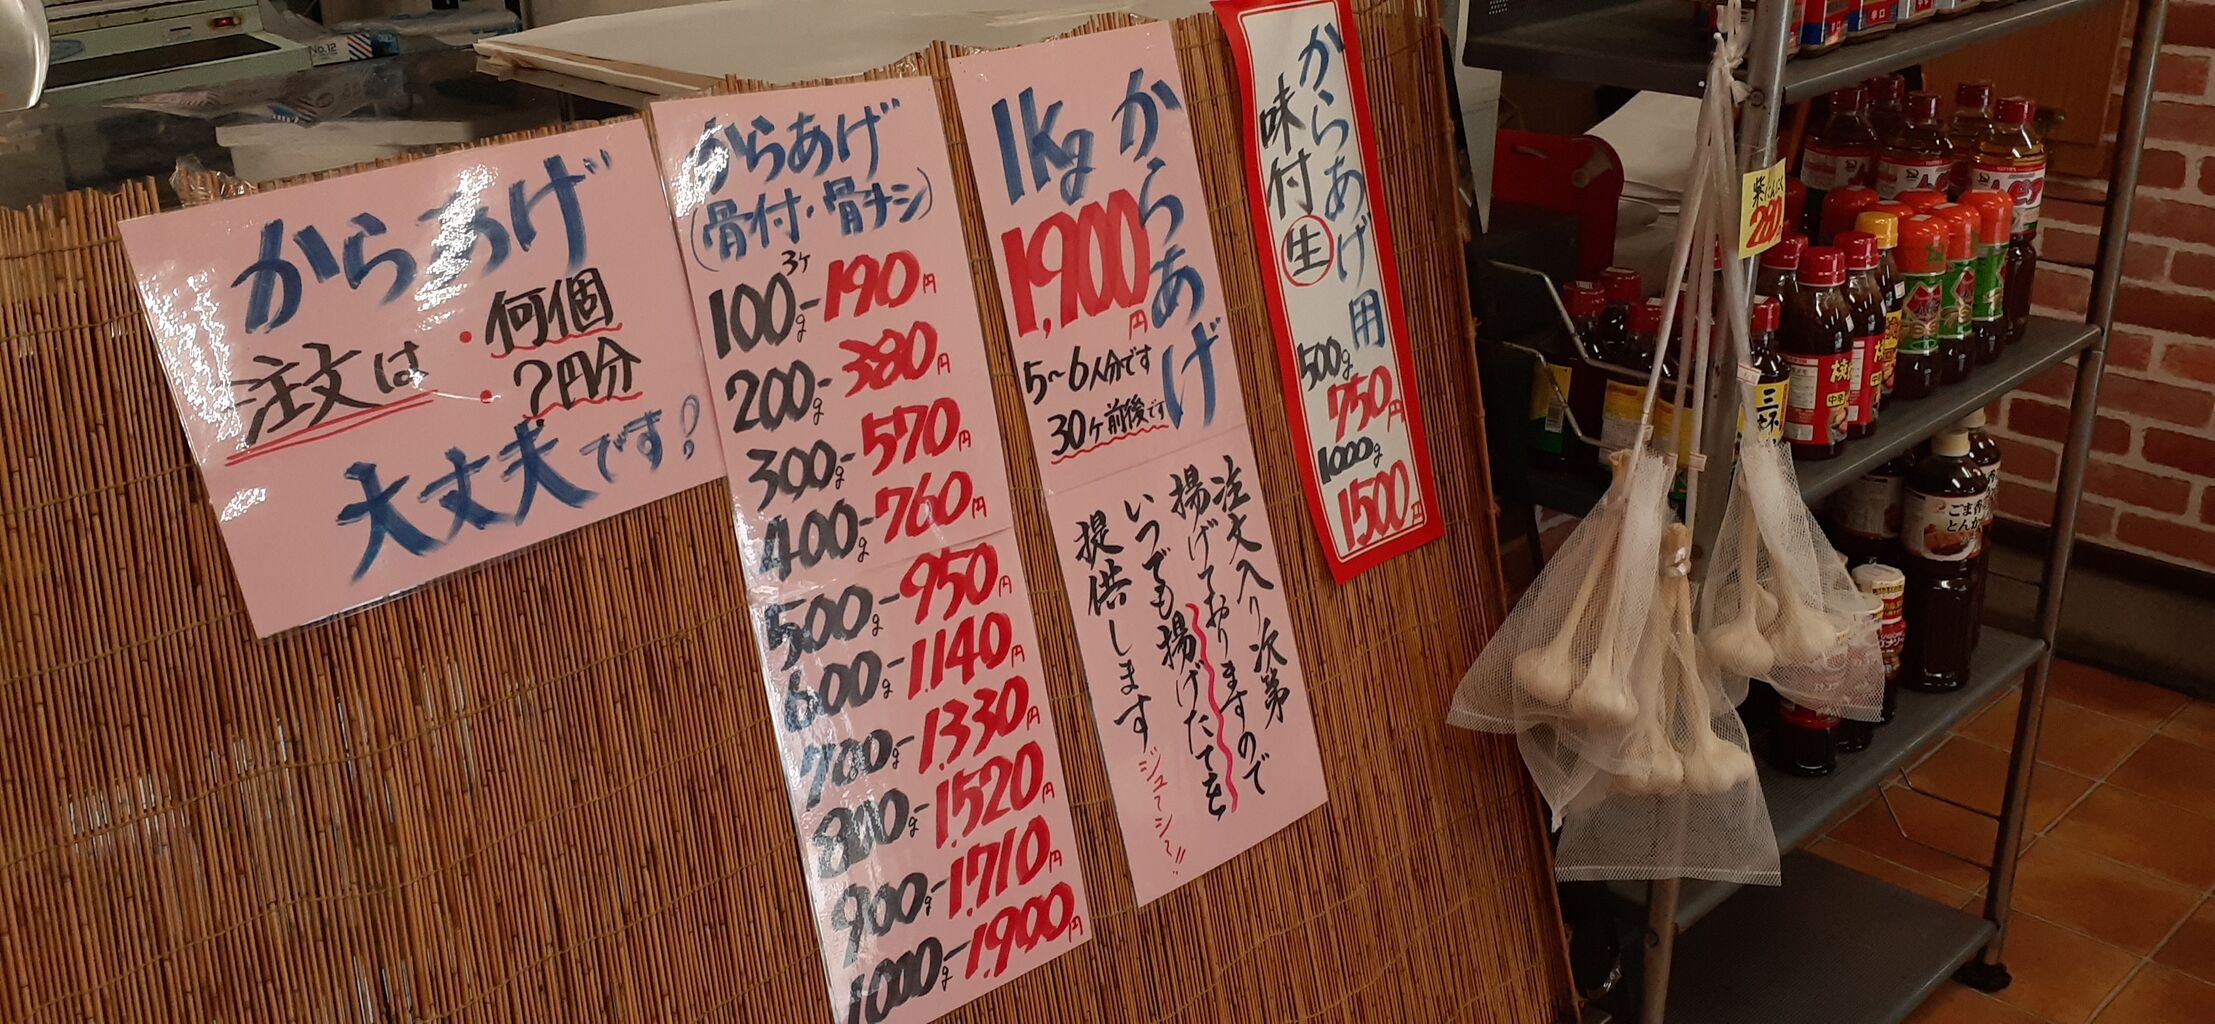 からあげ
注文は
・何個
・?円分
大丈夫です!
からあげ
(骨付・骨ナシ)
3ケ
100g-190円
200g-380円
300g-570円
400g-760円
500g-950円
600g-1.140円
700g-1.330円
800g-1.520円
900g-1.710円
1000g-1.900円
からあげ
1kg
1,900円
5~6人分です
30ケ前後です
注文入り次第
揚げておりますので
いつでも揚げたてを
提供します
ジュ~シ~!!
からあげ用
味付生
500g
750円
1000g
1500円
No.12
紫にんにく
280
三杯
中辛
ごま
とんか
辛口